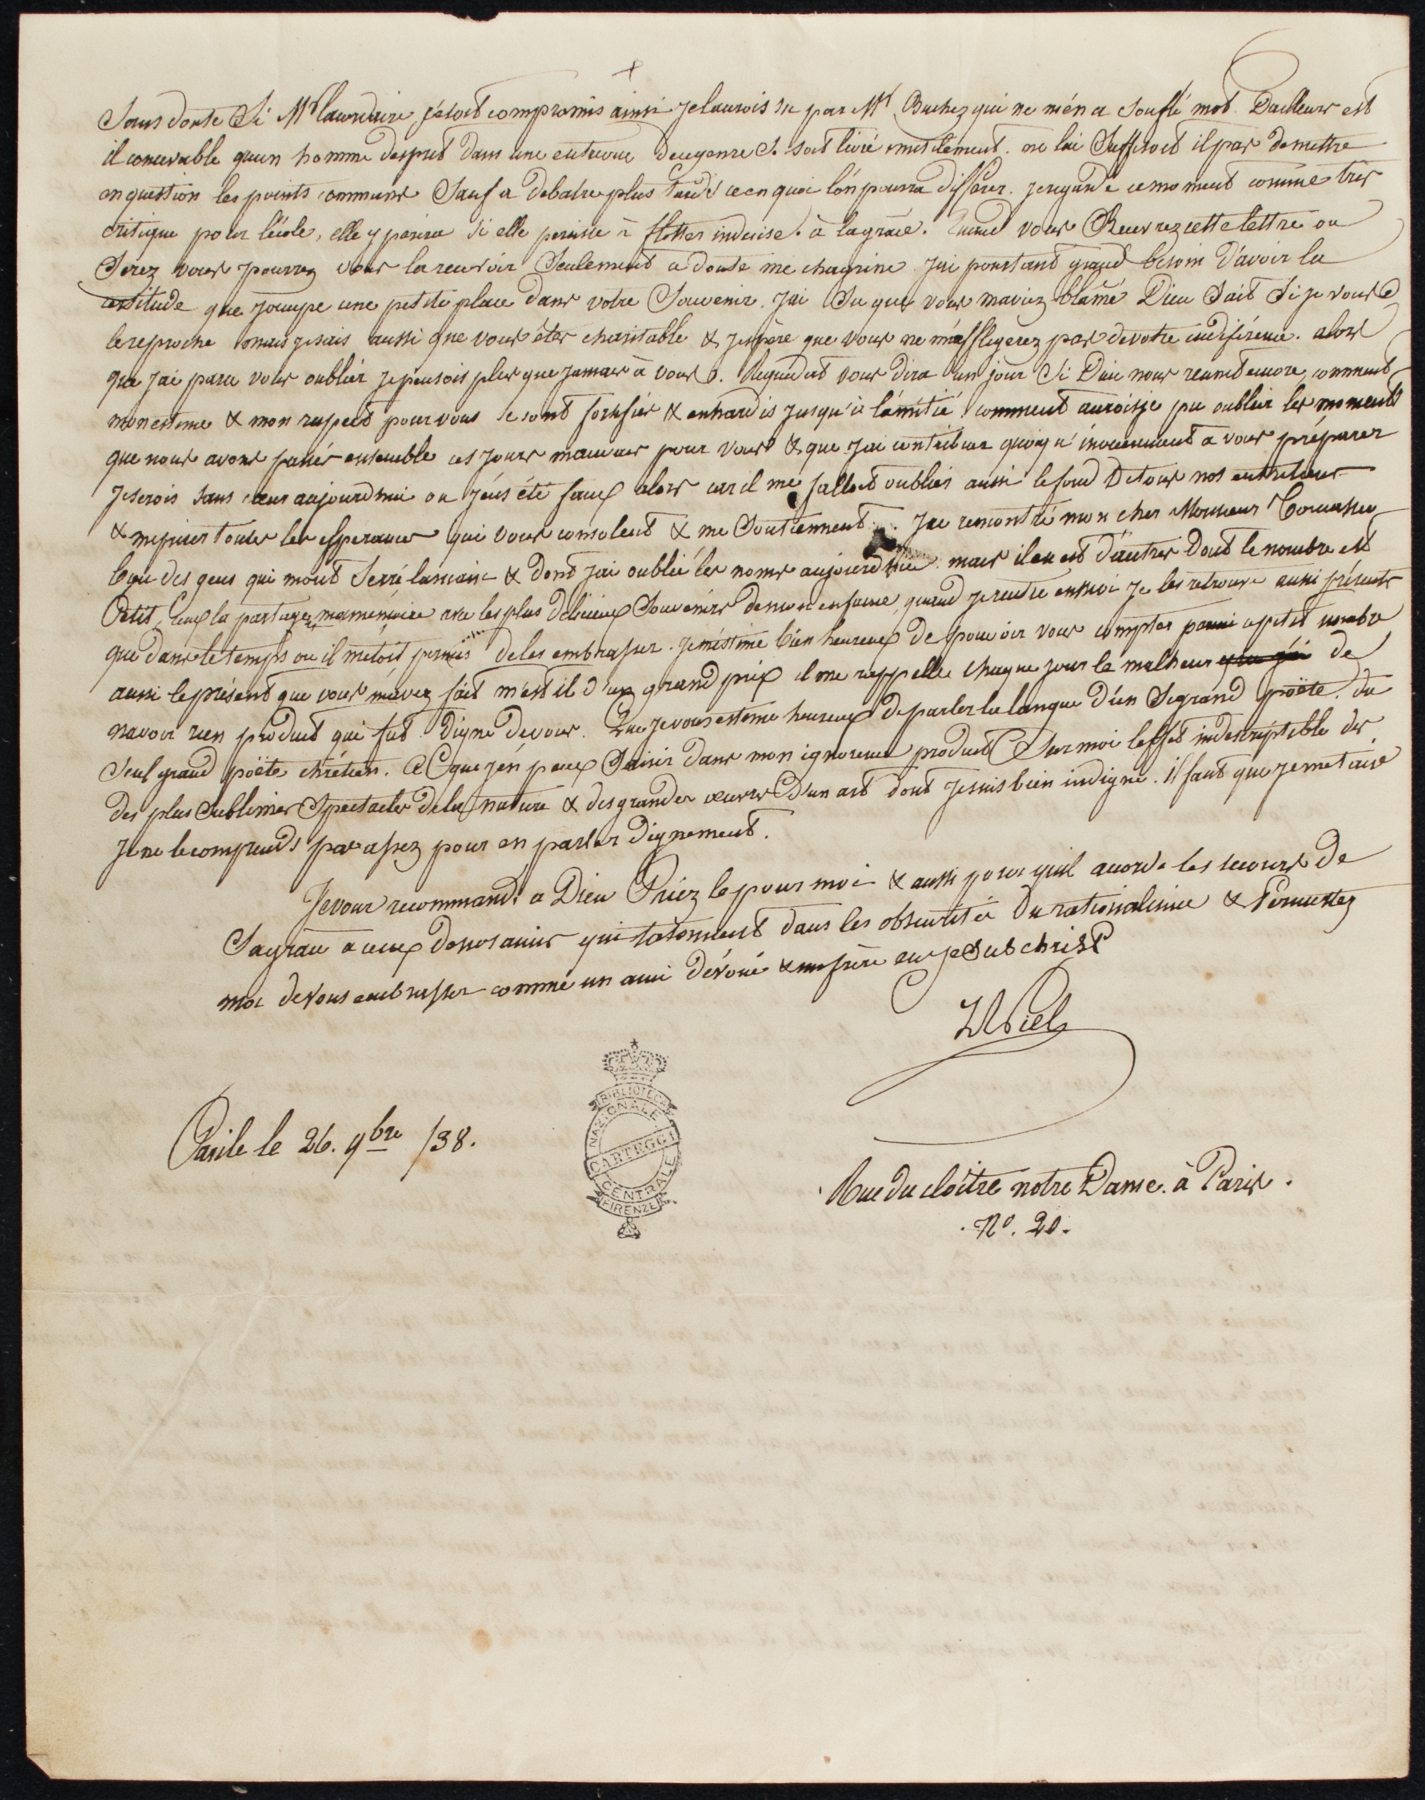 Sans doute Si Mr lacordaire s'étoit compromis ainsi je laurois su par Mr Buchez qui ne m'én a Souflé mot. D'ailleurs est
il concevable quun homme desprit dans une entrevue decegenre Se soit livré inutilement. ne lui Suffisoit il pas de mettre
en question les points communs Sauf a debatre plus tard ce en quoi lón pourra différer. je regarde ce moment comme très
critique pour lécole, elle y périra Si elle persiste à flotter indécise. à la grâce. Quand vous Recevrez cette lettre ou
Serez vous pourrez vous la recevoir Seulement ce doute me chagrine. Jai pourtant grand besoin d'avoir la
certitude que jóccupe une petite place dans votre Souvenir. Jai Su que vous maviez blâmé Dieu Sait Si je vous
le reproche mais je sais aussi que vous êtes charitable & jespère que vous ne m'affligerez pas de votre indiférence. alors
que jai paru vous oublier je pensois plus que jamais à vous. Requedat vous dira un jour Si Dieu nous reunit encore, comment
mon estime & mon respect pour vous se sont fortifiés & enhardis jusqu'à lámitié comment aurois je pu oublier les moments
que nous avons passés ensemble ces jours mauvais pour vous & que jai contribué quoiqu'innocemment a vous préparer
Je serois sans cœur aujourdhui ou jéus été faux alors car il me falloit oublier aussi le fond De tous nos entretiens
& renier toutes les esperances qui vous consolent & me Soutiennent. Jai rencontré mon cher Monsieur Tomaseo
bien des gens qui mónt Serré la main & dont jai oublié les noms aujourdhui mais il en est d'autres Dont le nombre est
Petit, Ceux la partagent ma mémoire avec les plus délicieux Souvenirs de mon enfance, quand je rentre en moi Je les retrouve aussi présents
que dans le temps ou il m'étoit permis de les embrasser. Je méstime bien heureux de pouvoir vous compter parmi ce petit nombre
aussi le présent que vous m'avez fait m'est il d'un grand prix il me rappelle chaque jour le malheur que jái de
navoir rien produit qui fut Digne de vous. Que je vous estime heureux de parler la langue d'un Si grand poëte, du
Seul grand poëte chrétien. Ce que jén peux Saisir dans mon ignorance produit Sur moi leffet indescriptible des
des plus Sublimes Spectacles de la nature & des grandes œuvres D'un art dont je suis bien indigne. il faut que je me taise
Je ne le comprends pas assez pour en parler dignement.
Je vous recommande a Dieu Priez le pour moi & aussi pour qu'il accorde les secours de
Sa grace a ceux de nos amis qui tatonnent dans les obscurités Du rationalisme & Permettez
moi de Vous embrasser comme un ami dévoué & un frère en Jesus christ
Piel
Paris le 26. 9bre /38.
BIBLIOTECA
NAZIONALE
CARTEGGI
CENTRALE
FIRENZE
Rue du cloître notre Dame. à Paris.
No. 20.